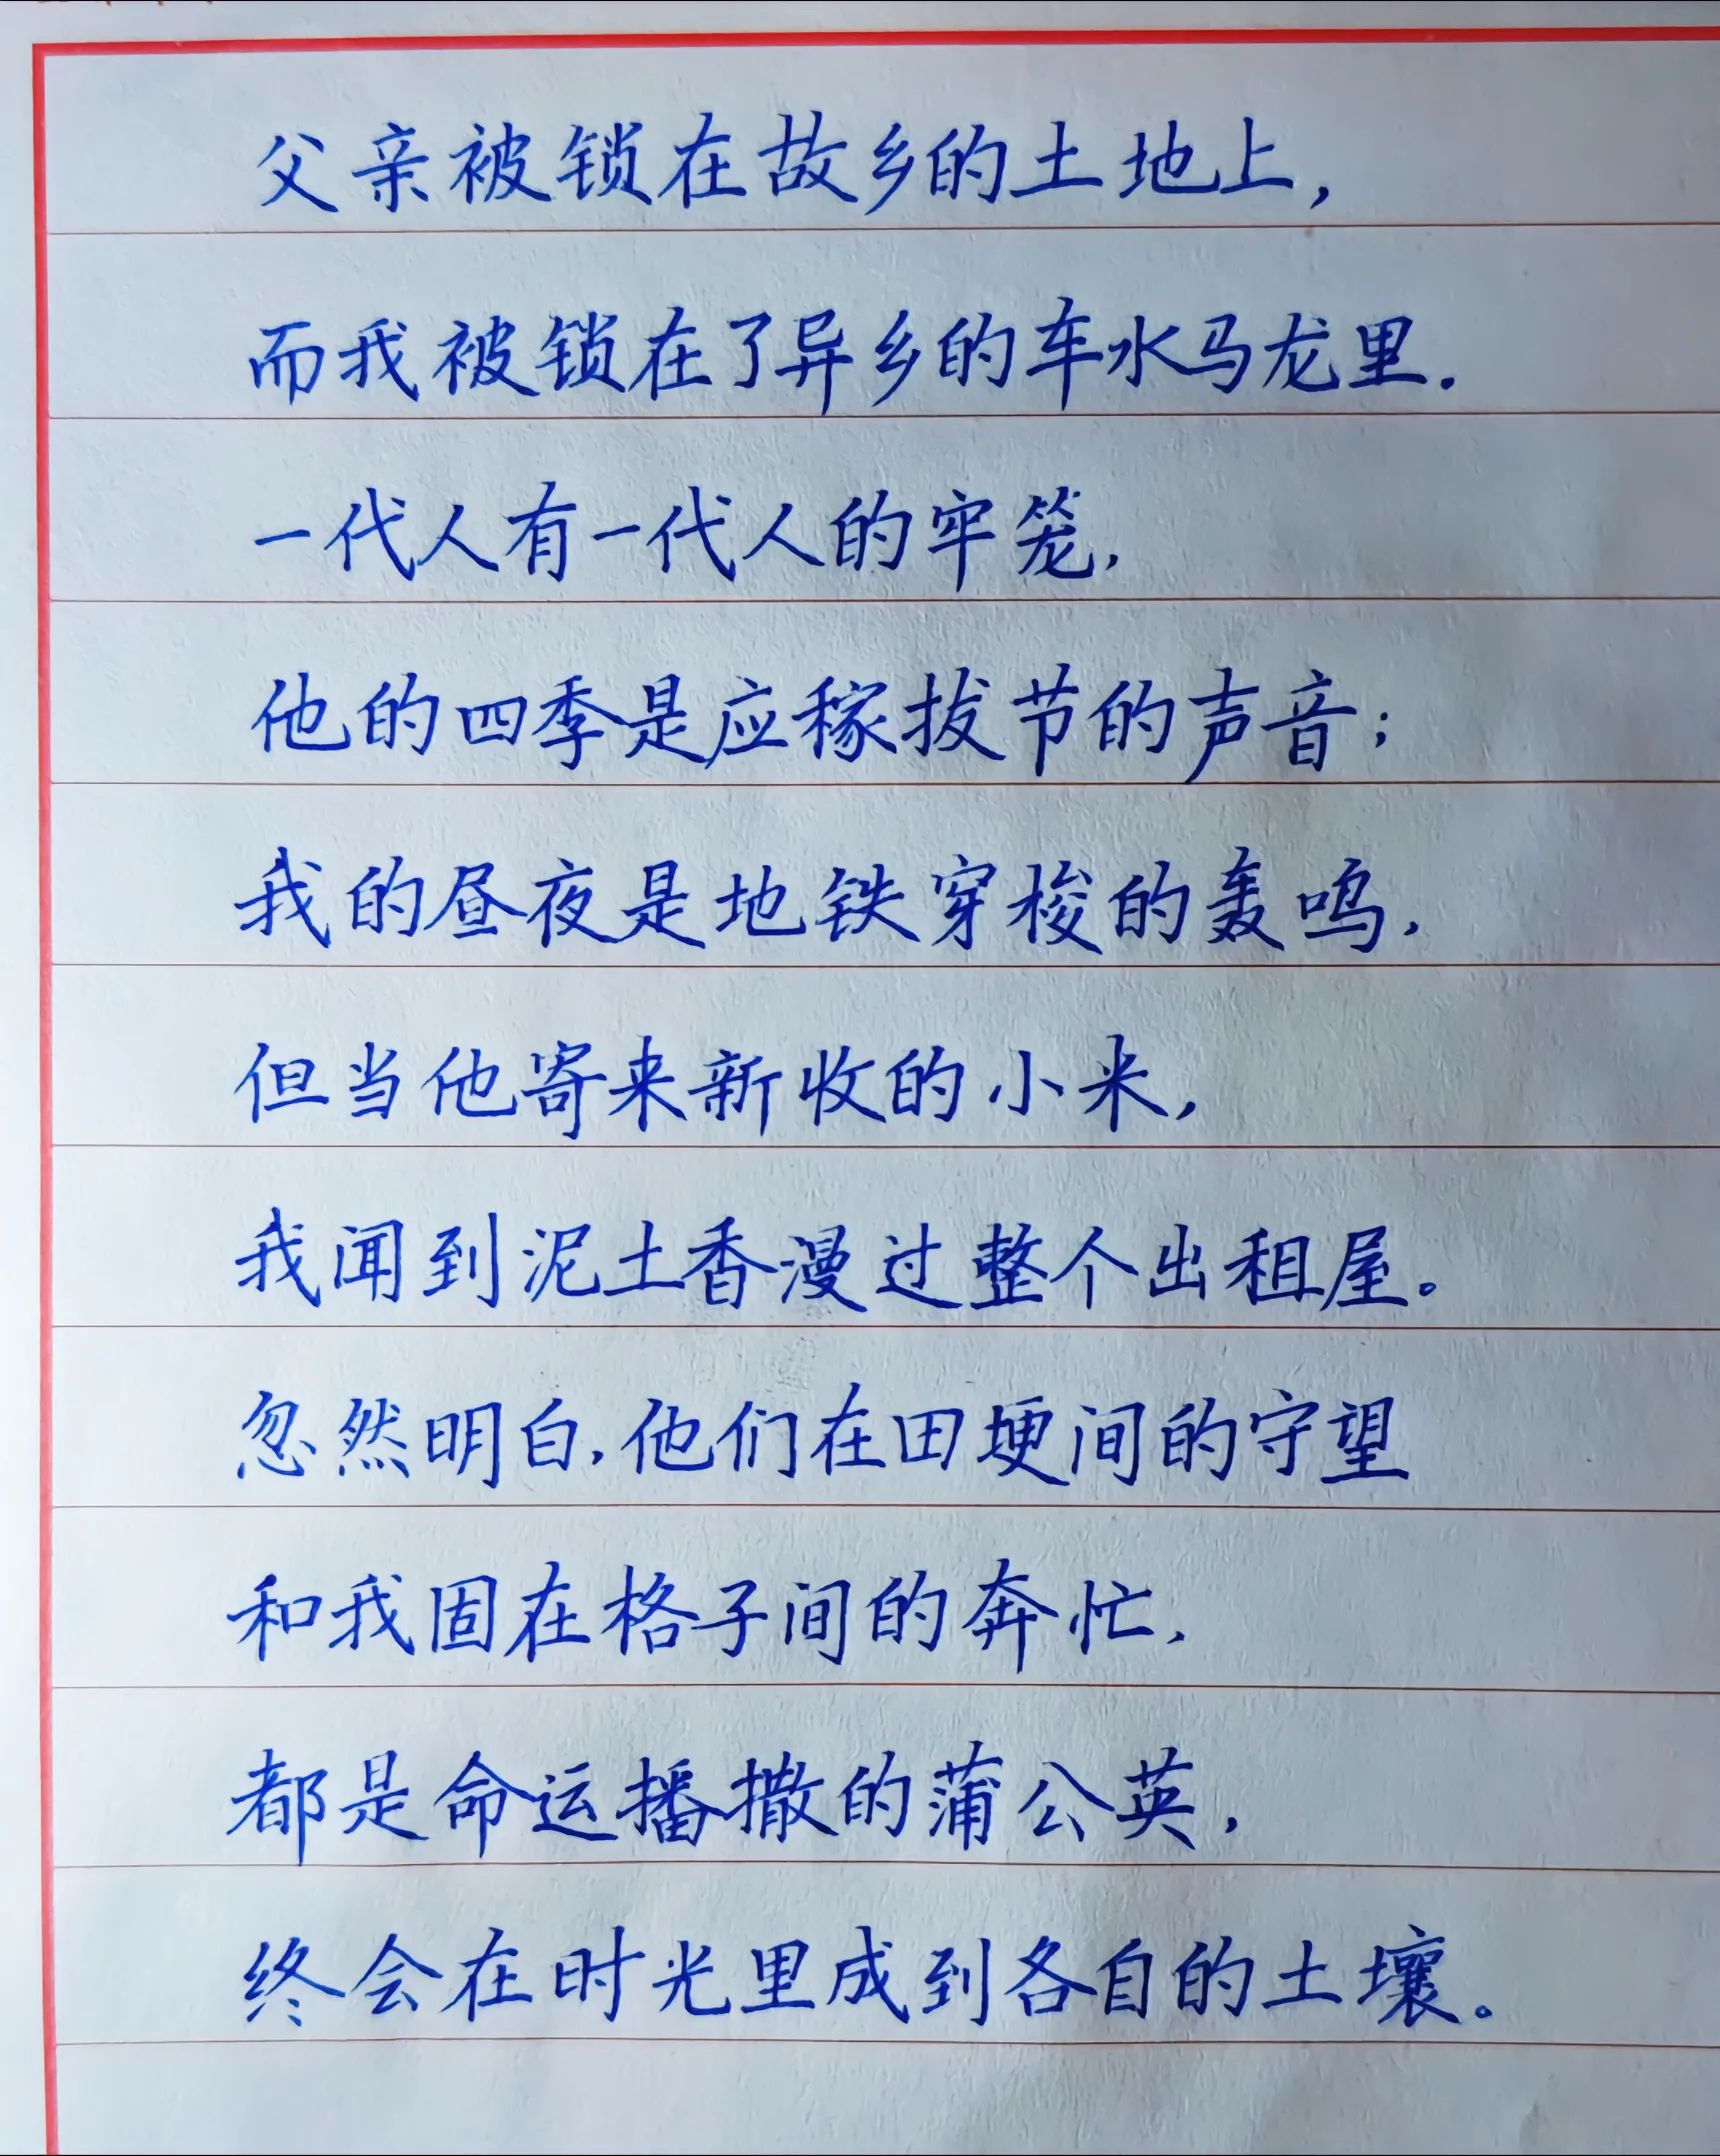 父亲被锁在故乡的土地上，
而我被锁在了异乡的车水马龙里.
一代人有一代人的牢笼，
他的四季是应稼拔节的声音；
我的昼夜是地铁穿梭的轰鸣，
但当他寄来新收的小米，
我闻到泥土香漫过整个出租屋。
忽然明白，他们在田埂间的守望
和我固在格子间的奔忙，
都是命运播撒的蒲公英，
终会在时光里成到各自的土壤。